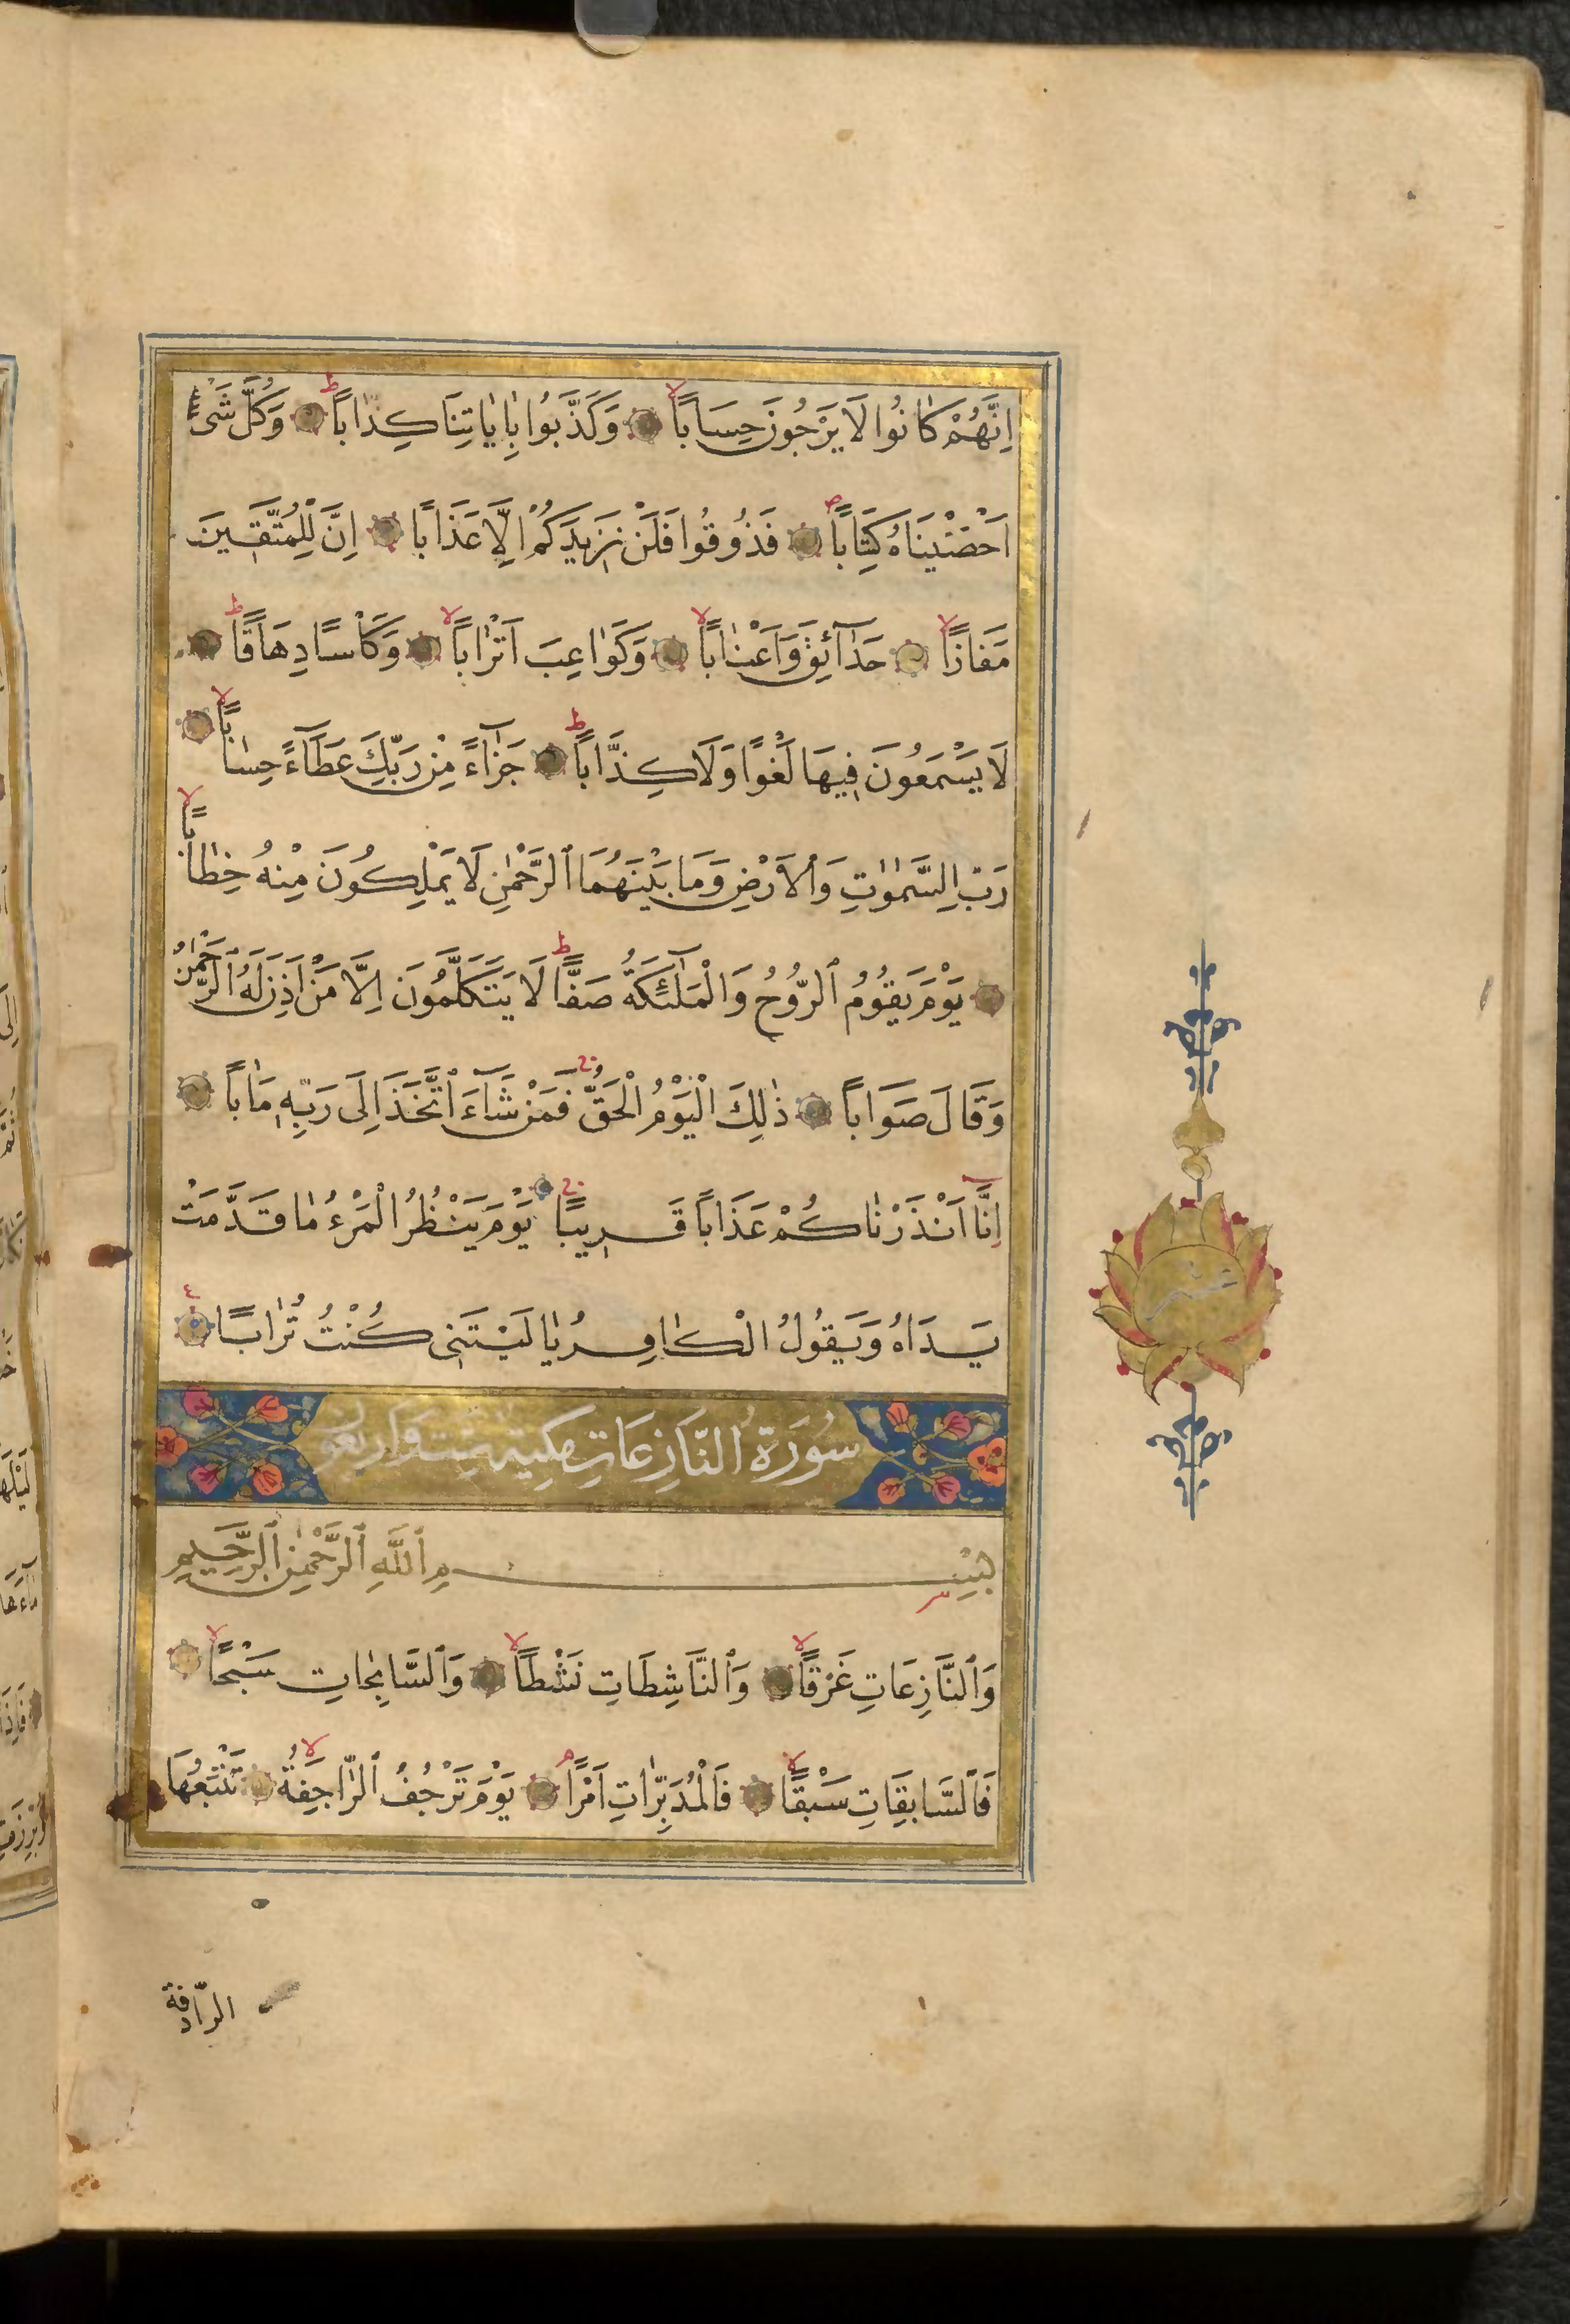 اِنَّهُمْ كَانُوا لَا يَرْجُونَ حِسَاباً وَكَذَّبُوا بِاٰيَاتِنَا كِذَّاباً وَكُلَّ شَىْءٍ
اَحْصَيْنَاهُ كِتَاباً فَذُوقُوا فَلَنْ نَزِيدَكُمْ اِلَّا عَذَابًا اِنَّ لِلْمُتَّقِينَ
مَفَازًا حَدَآئِقَ وَاَعْنَاباً وَكَوَاعِبَ اَتْرَاباً وَكَأْسًا دِهَاقًا
لَا يَسْمَعُونَ فِيهَا لَغْوًا وَلَا كِذَّاباً جَزَآءً مِنْ رَبِّكَ عَطَآءً حِسَاباً
رَبِّ السَّمٰوٰتِ وَالْاَرْضِ وَمَا بَيْنَهُمَا الرَّحْمٰنِ لَا يَمْلِكُونَ مِنْهُ خِطَاباً
يَوْمَ يَقُومُ الرُّوحُ وَالْمَلٰٓئِكَةُ صَفًّا لَا يَتَكَلَّمُونَ اِلَّا مَنْ اَذِنَ لَهُ الرَّحْمٰنُ
وَقَالَ صَوَاباً ذٰلِكَ الْيَوْمُ الْحَقُّ فَمَنْ شَآءَ اتَّخَذَ اِلَى رَبِّهِ مَاٰباً
اِنَّا اَنْذَرْنَاكُمْ عَذَاباً قَرِيبًا يَوْمَ يَنْظُرُ الْمَرْءُ مَا قَدَّمَتْ
يَدَاهُ وَيَقُولُ الْكَافِرُ يَا لَيْتَنِى كُنْتُ تُرَابًا
سُورَةُ النَّازِعَاتِ مكية ست واربعو
بِسْمِ اللّٰهِ الرَّحْمٰنِ الرَّحِيمِ
وَالنَّازِعَاتِ غَرْقًا وَالنَّاشِطَاتِ نَشْطًا وَالسَّابِحَاتِ سَبْحًا
فَالسَّابِقَاتِ سَبْقًا فَالْمُدَبِّرَاتِ اَمْرًا يَوْمَ تَرْجُفُ الرَّاجِفَةُ تَتْبَعُهَا
الرّادفة